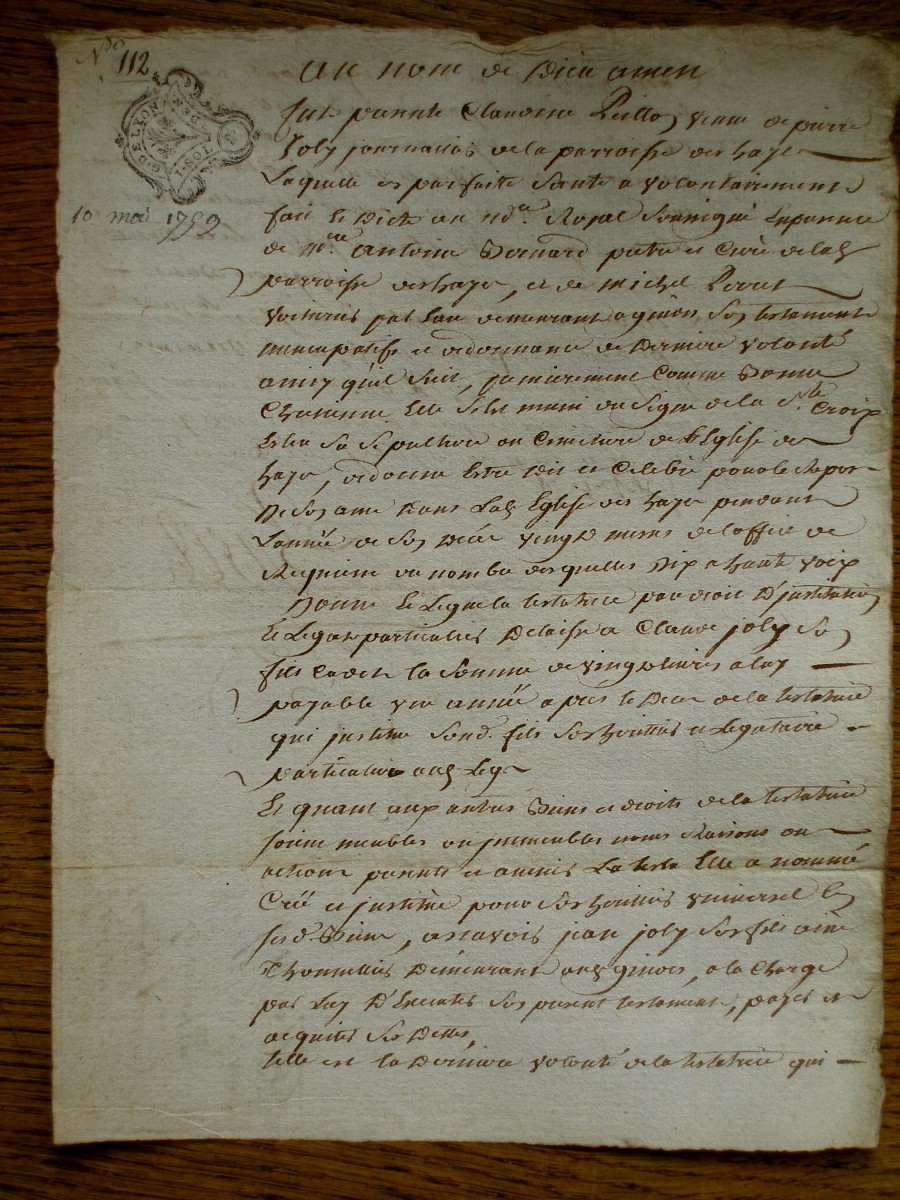 N° 112
GEN. DE LYON
1. SOL
10 mai 1759
Au nom de Dieu amen
fut presente Claudine Veuve de pierre
Joly journallier de la parroisse des hayes
Laquelle en parfaite santé a volontairement
fait et Dicté au no.re Royal soussigné En presence
de m.re Antoine Bernard pretre et Curé de lad
parroisse des hayes, et de michel
Voiturier par Eau demeurant a givors son testament
nuncupatif et ordonnance de Derniere volonté
ainsy qu'il suit, premierement Comme Bonne
Chretienne Elle s'est muni du signe de la S.te Croix
Eslu sa sepulture au Cimetiere de l'Eglise des
hayes, ordonne Estre dit et Celebré pour le Repos
De son ame Dans Lad Eglise des hayes pendant
L'année de son Décès vingt messes de l'office de
Requiem au nombre desquelles Dix a haute voix
Donne et Legue la testatrice par droit D'jnstitution
et Legat particulier Delaisse a Claude joly son
fils Cadet la somme de vingt livres a luy
payable une année apres le Décès de la testatrice
qui jnstitue sond. fils son heritier et Legataire
particulier aud Leg
Et quant aux autres Biens et droits de la testatrice
soient meubles ou jmmeubles noms Raisons ou
actions presents et avenir La testa Elle a nommé
Créé et jnstitué pour son heritier universel En
sesd. Biens, asçavoir jean joly son fils ainé
Thonnellier Demeurant aud givors, a la Charge
par Luy D'Executer son present testament, payer et
acquitter ses Dettes,
telle est la Derniere volonté de la testatrice qui